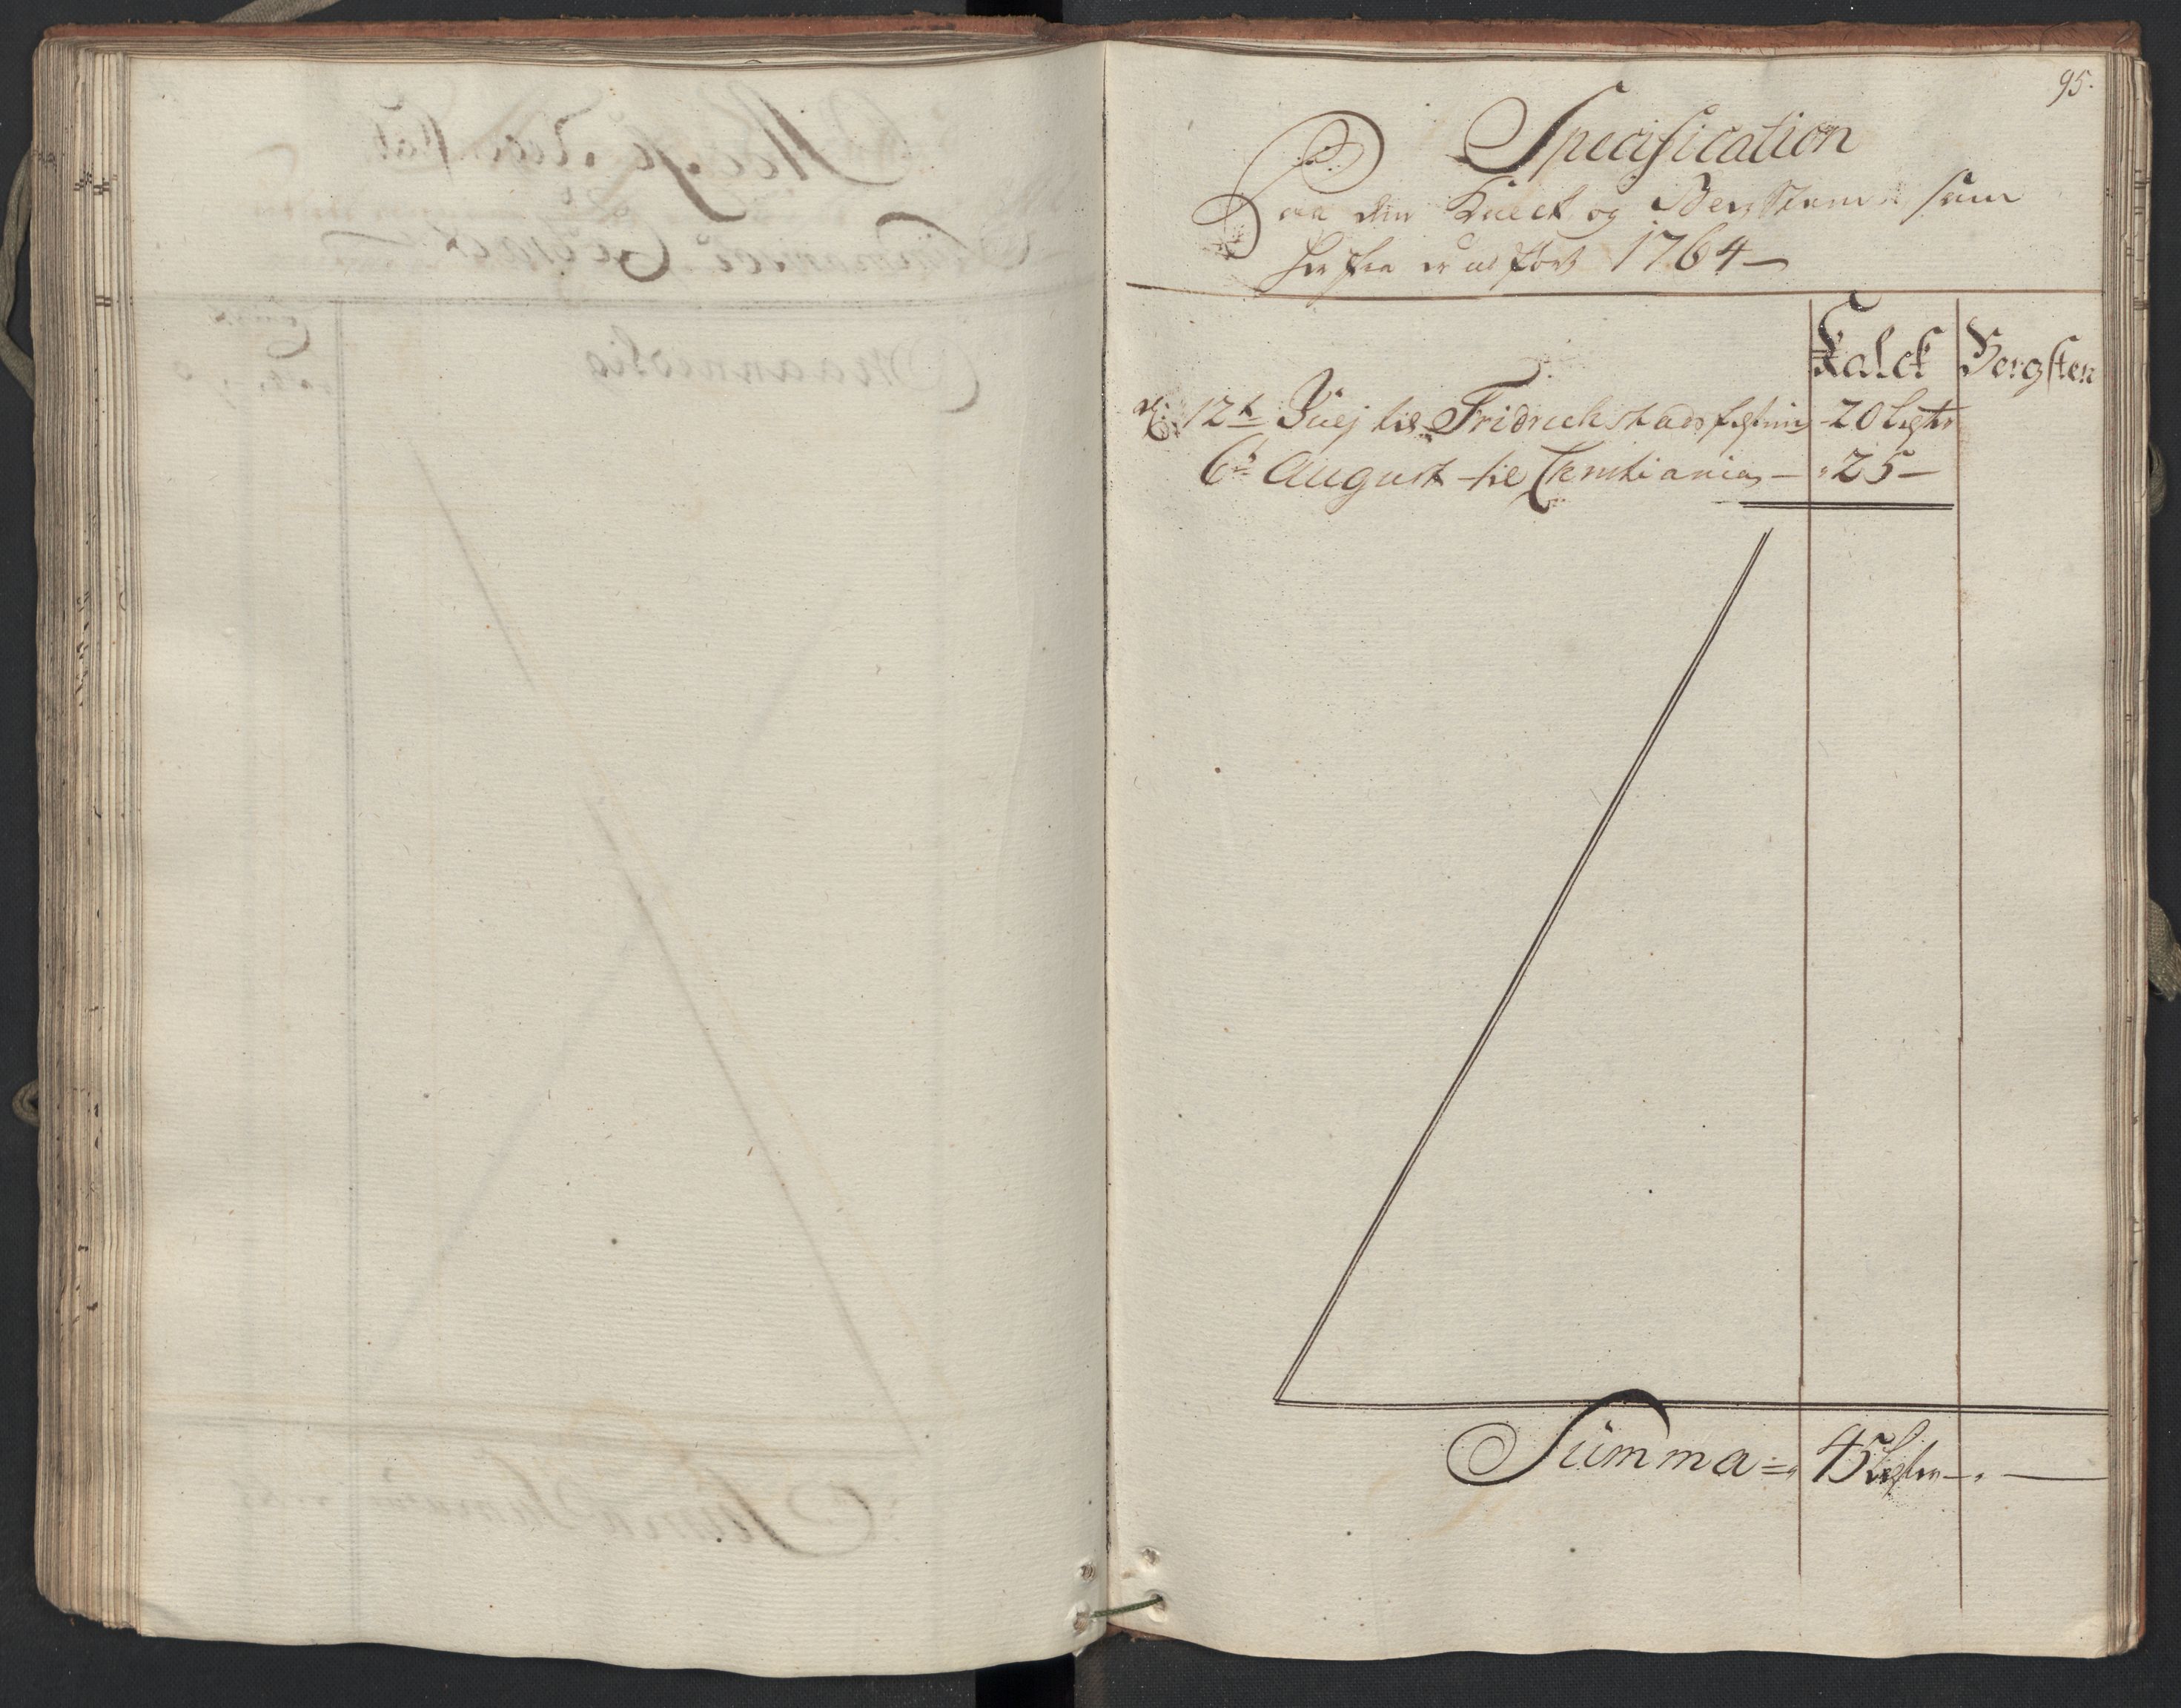 95.
Specification
Paa den Kalck og Bergsteene som
her fra er udført 1764 —
Kalck Bergsten
12t July til Fridrichstads festning - 20 Legter
6t August til Christiania — " 25 —
Summa = " 45 Legter — " —